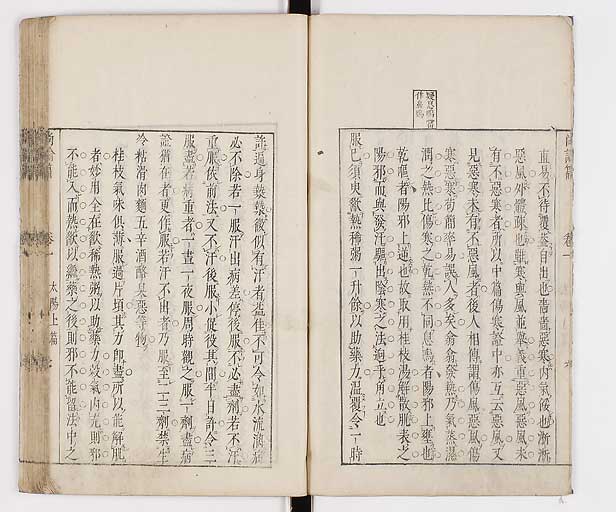 直易不待覆蓋自出也嗇嗇惡寒內氣餒也淅淅
惡風外體疎也雖寒與風並舉義重惡風惡風未
有不惡寒者所以中篇傷寒證中亦互云惡風又
見惡寒未有不惡風者後人相傳謂傷風惡風傷
寒惡寒苟簡率易誤人多矣翕翕發熱乃氣蒸濕
潤之熱比傷寒之乾熱不同息鳴者陽邪上壅也
乾嘔者陽邪上逆也故取用桂枝湯解散肌表之
陽邪而與發汗驅出陰寒之法逈乎角立也
服已須臾歠熱稀粥一升餘以助藥力溫覆令一時
許遍身漐漐微似有汗者益佳不可令如水流漓病
必不除若一服汗出病差停後服不必盡劑若不汗
重服依前法又不汗後服小促役其間半日許令三
服盡若病重者一晝一夜服周時觀之服一劑盡病
證猶在者更作服若汗不出者乃服至二三劑禁生
冷粘滑肉麵五辛酒酪臭惡等物
桂枝氣味俱薄服過片頃其力即盡所以能解肌
者妙用全在歠稀熱粥以助藥力穀氣內充則邪
不能入而熱歠以繼藥之後則邪不能留法中之
卷一
太陽上篇